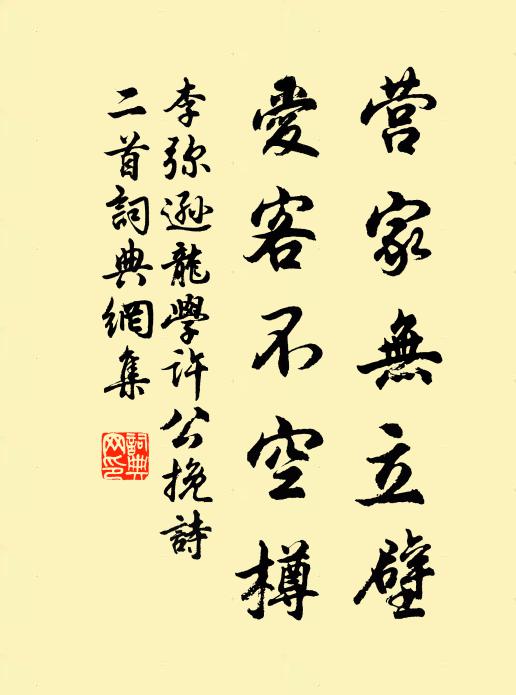 营家無立壁
愛客不空樽
李弥遜龍學許公挽詩
二首詞典網集
詞典
网印